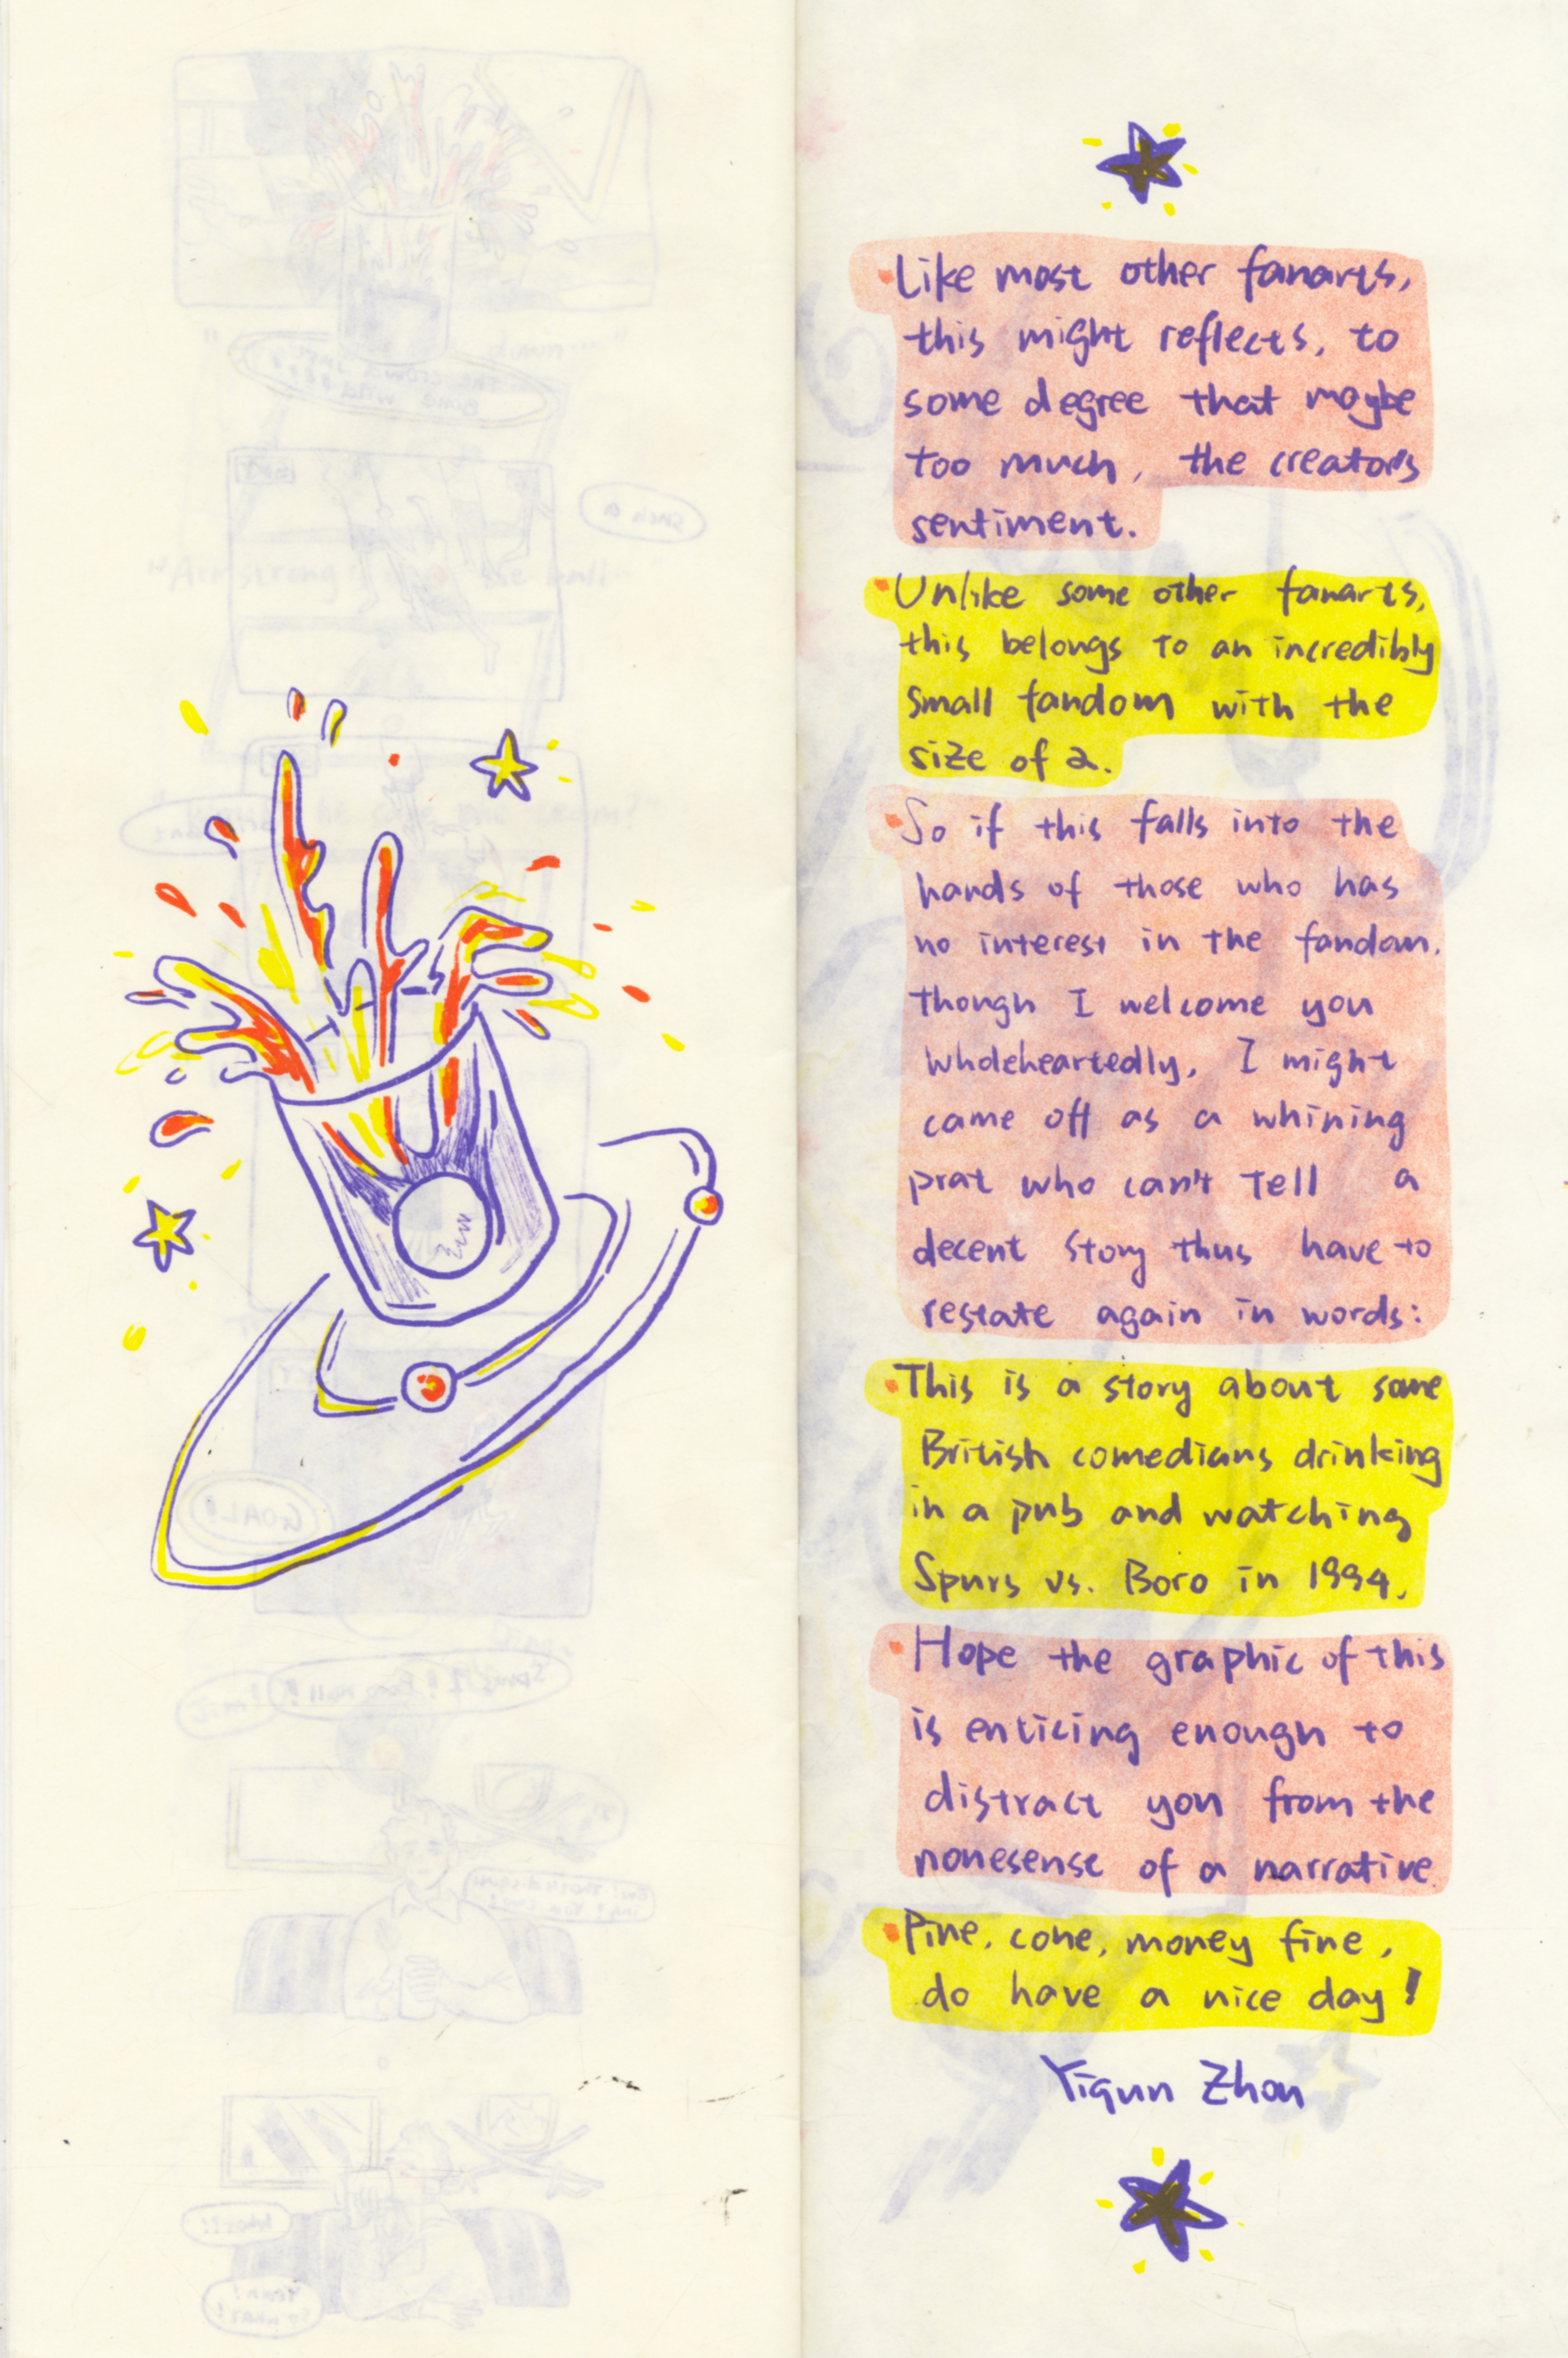 Like most other fanarts,
this might reflects, to
some degree that maybe
too much, the creator's
sentiment.
Unlike some other fanarts,
this belongs to an incredibly
small fandom with the
size of 2.
So if this falls into the
hands of those who has
no interest in the fandom.
though I welcome you
wholeheartedly, I might
came off as a whining
prat who can't tell a
decent story thus have to
restate again in words:
This is a story about some
British comedians drinking
in a pub and watching
Spurs vs. Boro in 1994.
Hope the graphic of this
is enticing enough to
distract you from the
nonesense of a narrative
Pine, cone, money fine,
do have a nice day!
Yiqun Zhou